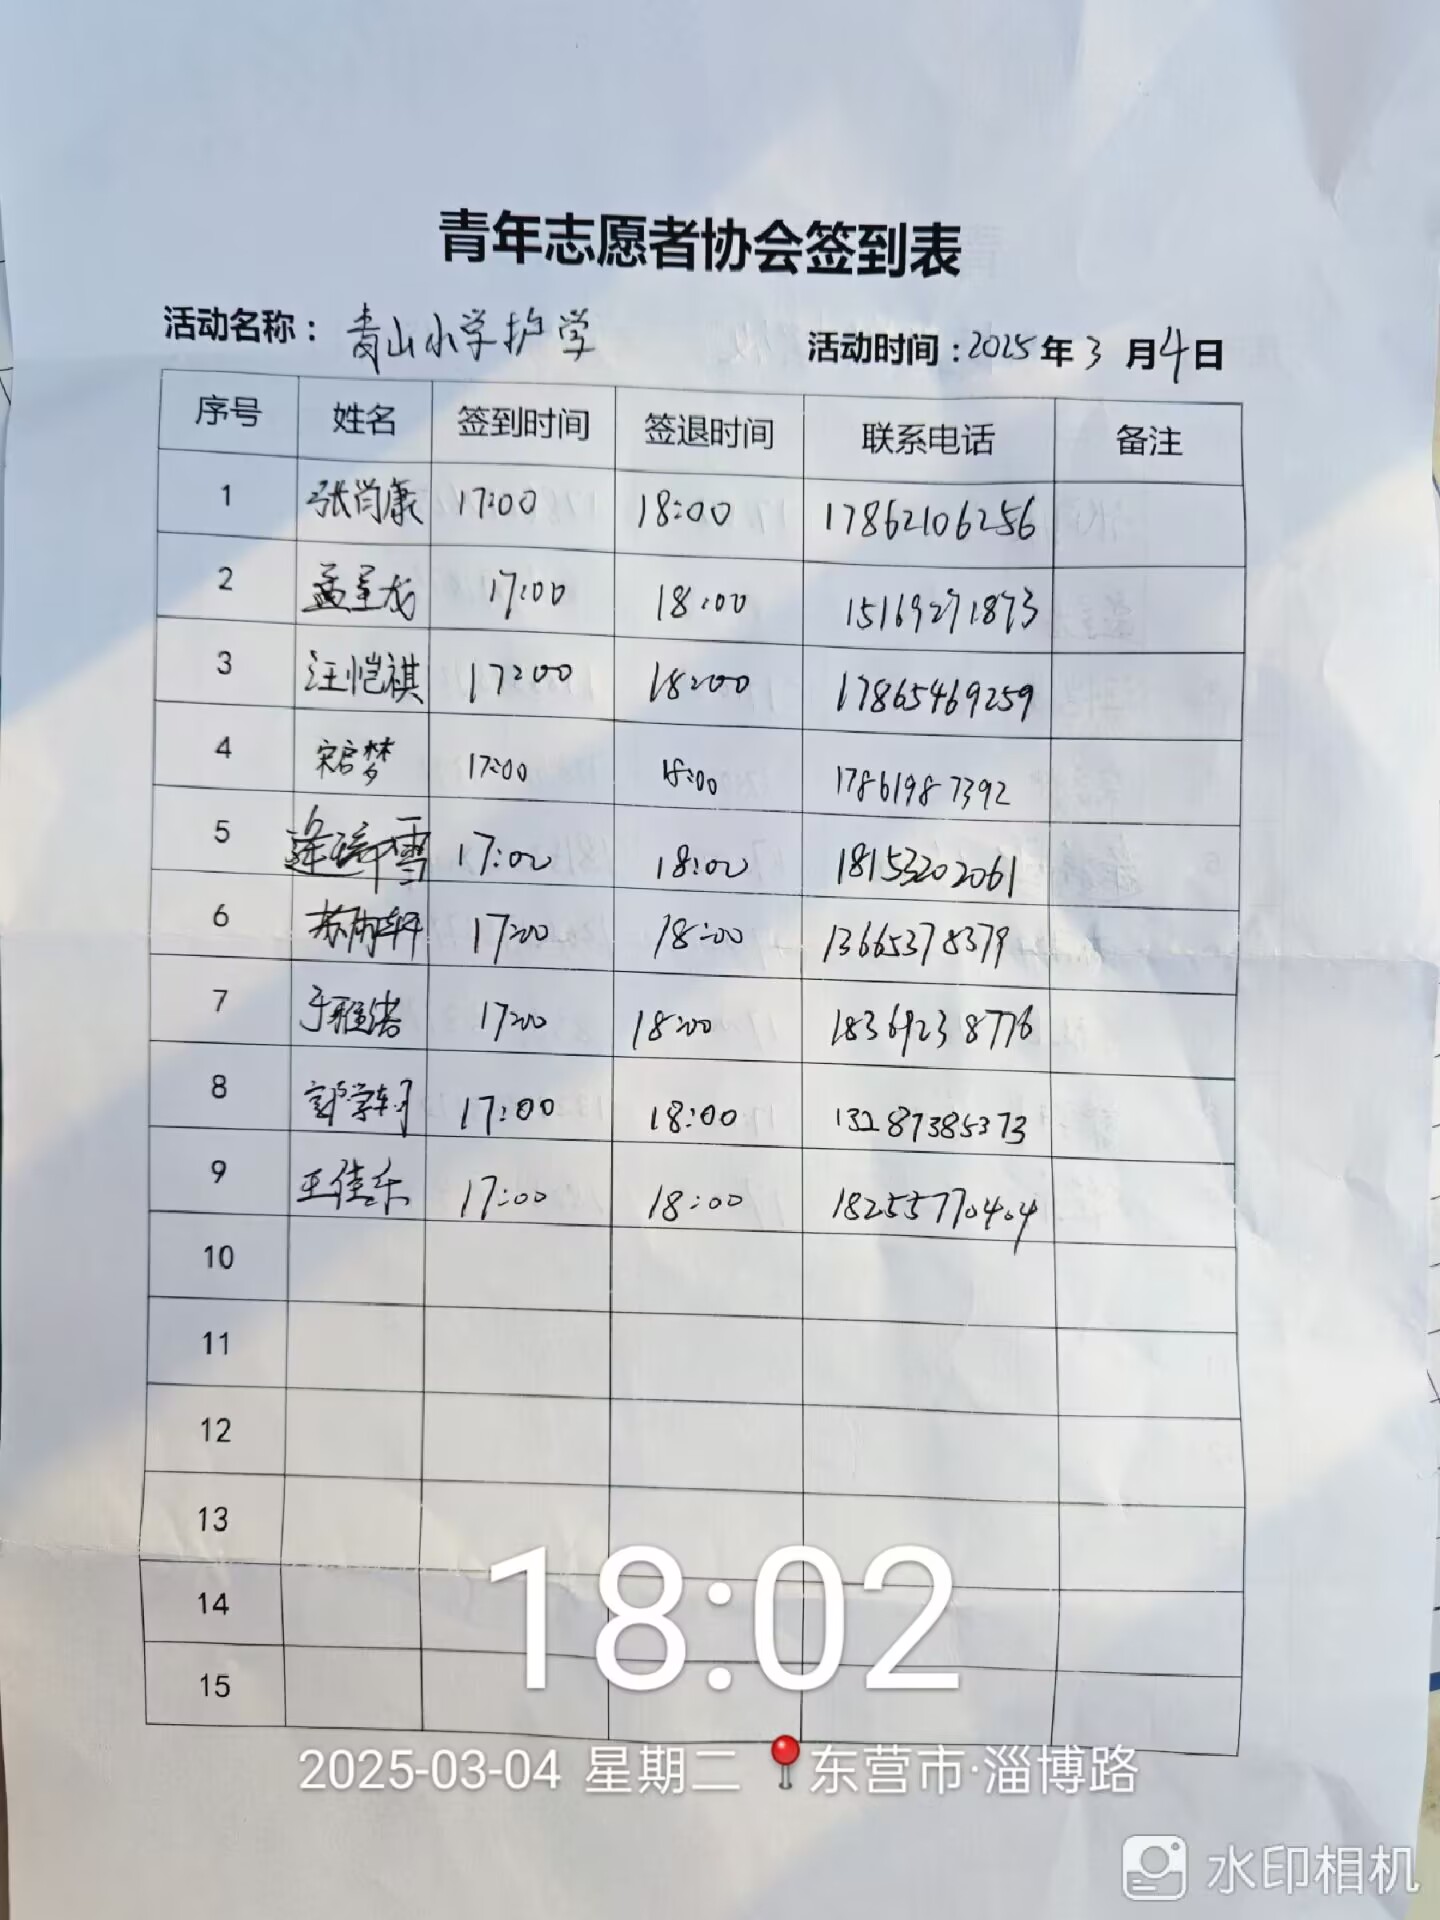 青年志愿者协会签到表
活动名称：青山小学护学 活动时间：2025年3月4日
序号 姓名 签到时间 签退时间 联系电话 备注
1 张肖康 17:00 18:00 17862106256
2 孟呈龙 17:00 18:00 15169271873
3 汪恺祺 17:00 18:00 17865469259
4 宋启梦 17:00 18:00 17861987392
5 逄琦雪 17:00 18:00 18153202061
6 苏雨轩 17:00 18:00 13665378379
7 于雅诺 17:00 18:00 18369238776
8 郭学轲 17:00 18:00 13287385373
9 王佳乐 17:00 18:00 18255770404
10
11
12
13
14
15
18:02
2025-03-04 星期二 东营市·淄博路
水印相机